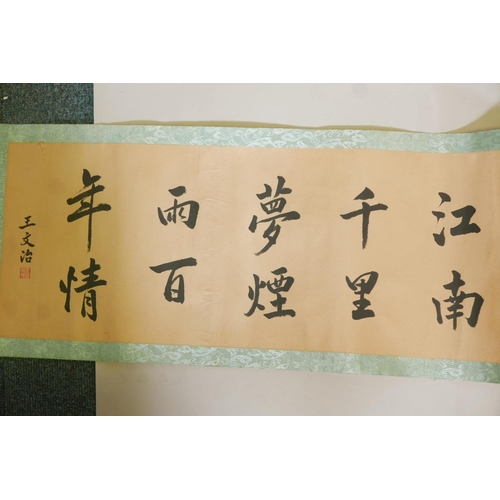 江南
千里
夢煙
雨百
年情
王文治